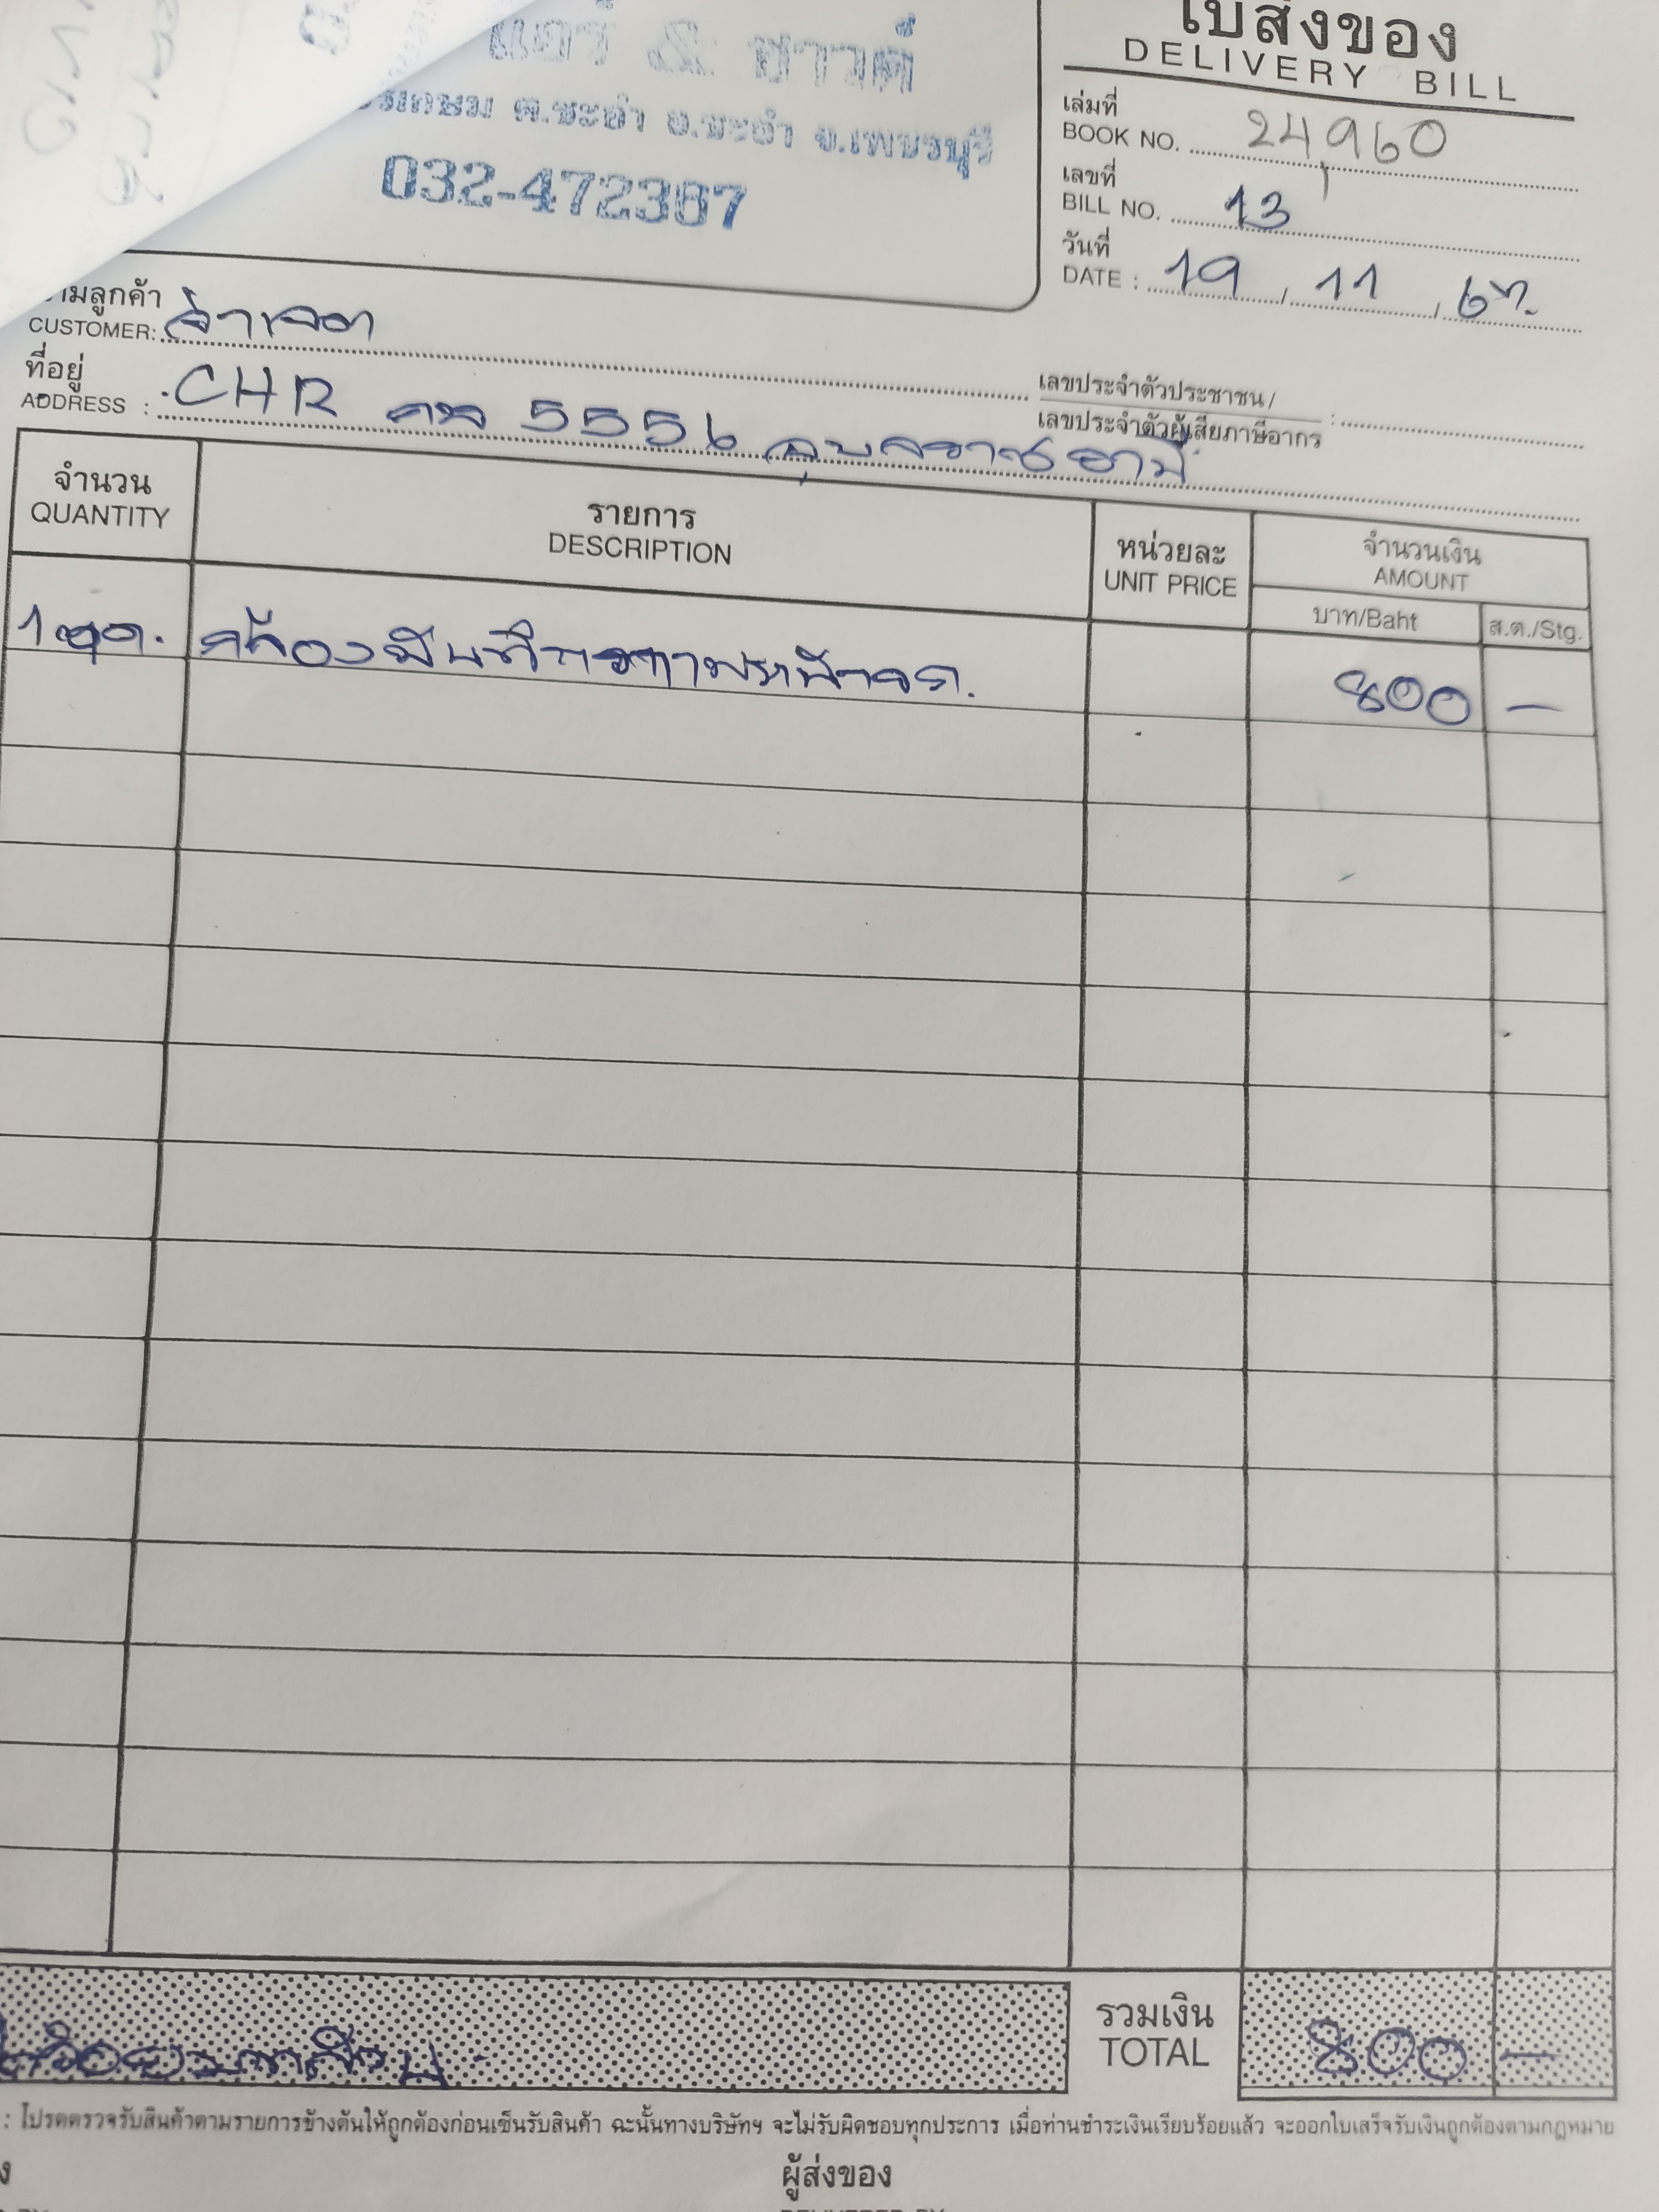 แอร์ & ซาวด์
ต.ชะอำ อ.ชะอำ จ.เพชรบุรี
032-472387
ใบส่งของ
DELIVERY BILL
เล่มที่
BOOK NO. 24,960
เลขที่
BILL NO. 13
วันที่
DATE : 19 / 11 / 67.
ามลูกค้า
CUSTOMER:
ที่อยู่
ADDRESS : CHR 5556 อุบลราชธานี
เลขประจำตัวประชาชน /
เลขประจำตัวผู้เสียภาษีอากร :
จำนวน
QUANTITY
รายการ
DESCRIPTION
หน่วยละ
UNIT PRICE
จำนวนเงิน
AMOUNT
บาท/Baht
ส.ต./Stg.
1 ชุด. กล้องบันทึกภาพหน้ารถ. 800 —
รวมเงิน
TOTAL
แปดร้อยบาทถ้วน 800 —
: โปรดตรวจรับสินค้าตามรายการข้างต้นให้ถูกต้องก่อนเซ็นรับสินค้า ฉะนั้นทางบริษัทฯ จะไม่รับผิดชอบทุกประการ เมื่อท่านชำระเงินเรียบร้อยแล้ว จะออกใบเสร็จรับเงินถูกต้องตามกฎหมาย
ผู้ส่งของ